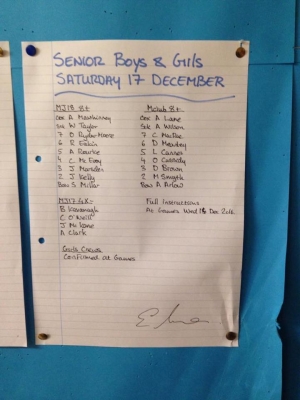 SENIOR BOYS & GIRLS
SATURDAY 17 DECEMBER
MJ18 8+
Cox A Mawhinney
Str W Taylor
7 O
6 R Eakin
5 A Rourke
4 C McEvoy
3 J Marsden
2 J Kelly
Bow S Millar
B Kavanagh
C O'Neill
J McKane
A Clark
Girls Crews
Confirmed at Games
8+
Cox A Lane
Str A Wilson
7 C
6 D
5 L
4 O Cassidy
3 D Brown
2 M Smyth
Bow A Arlow
Full Instructions
At Games Wed 14 Dec 2016